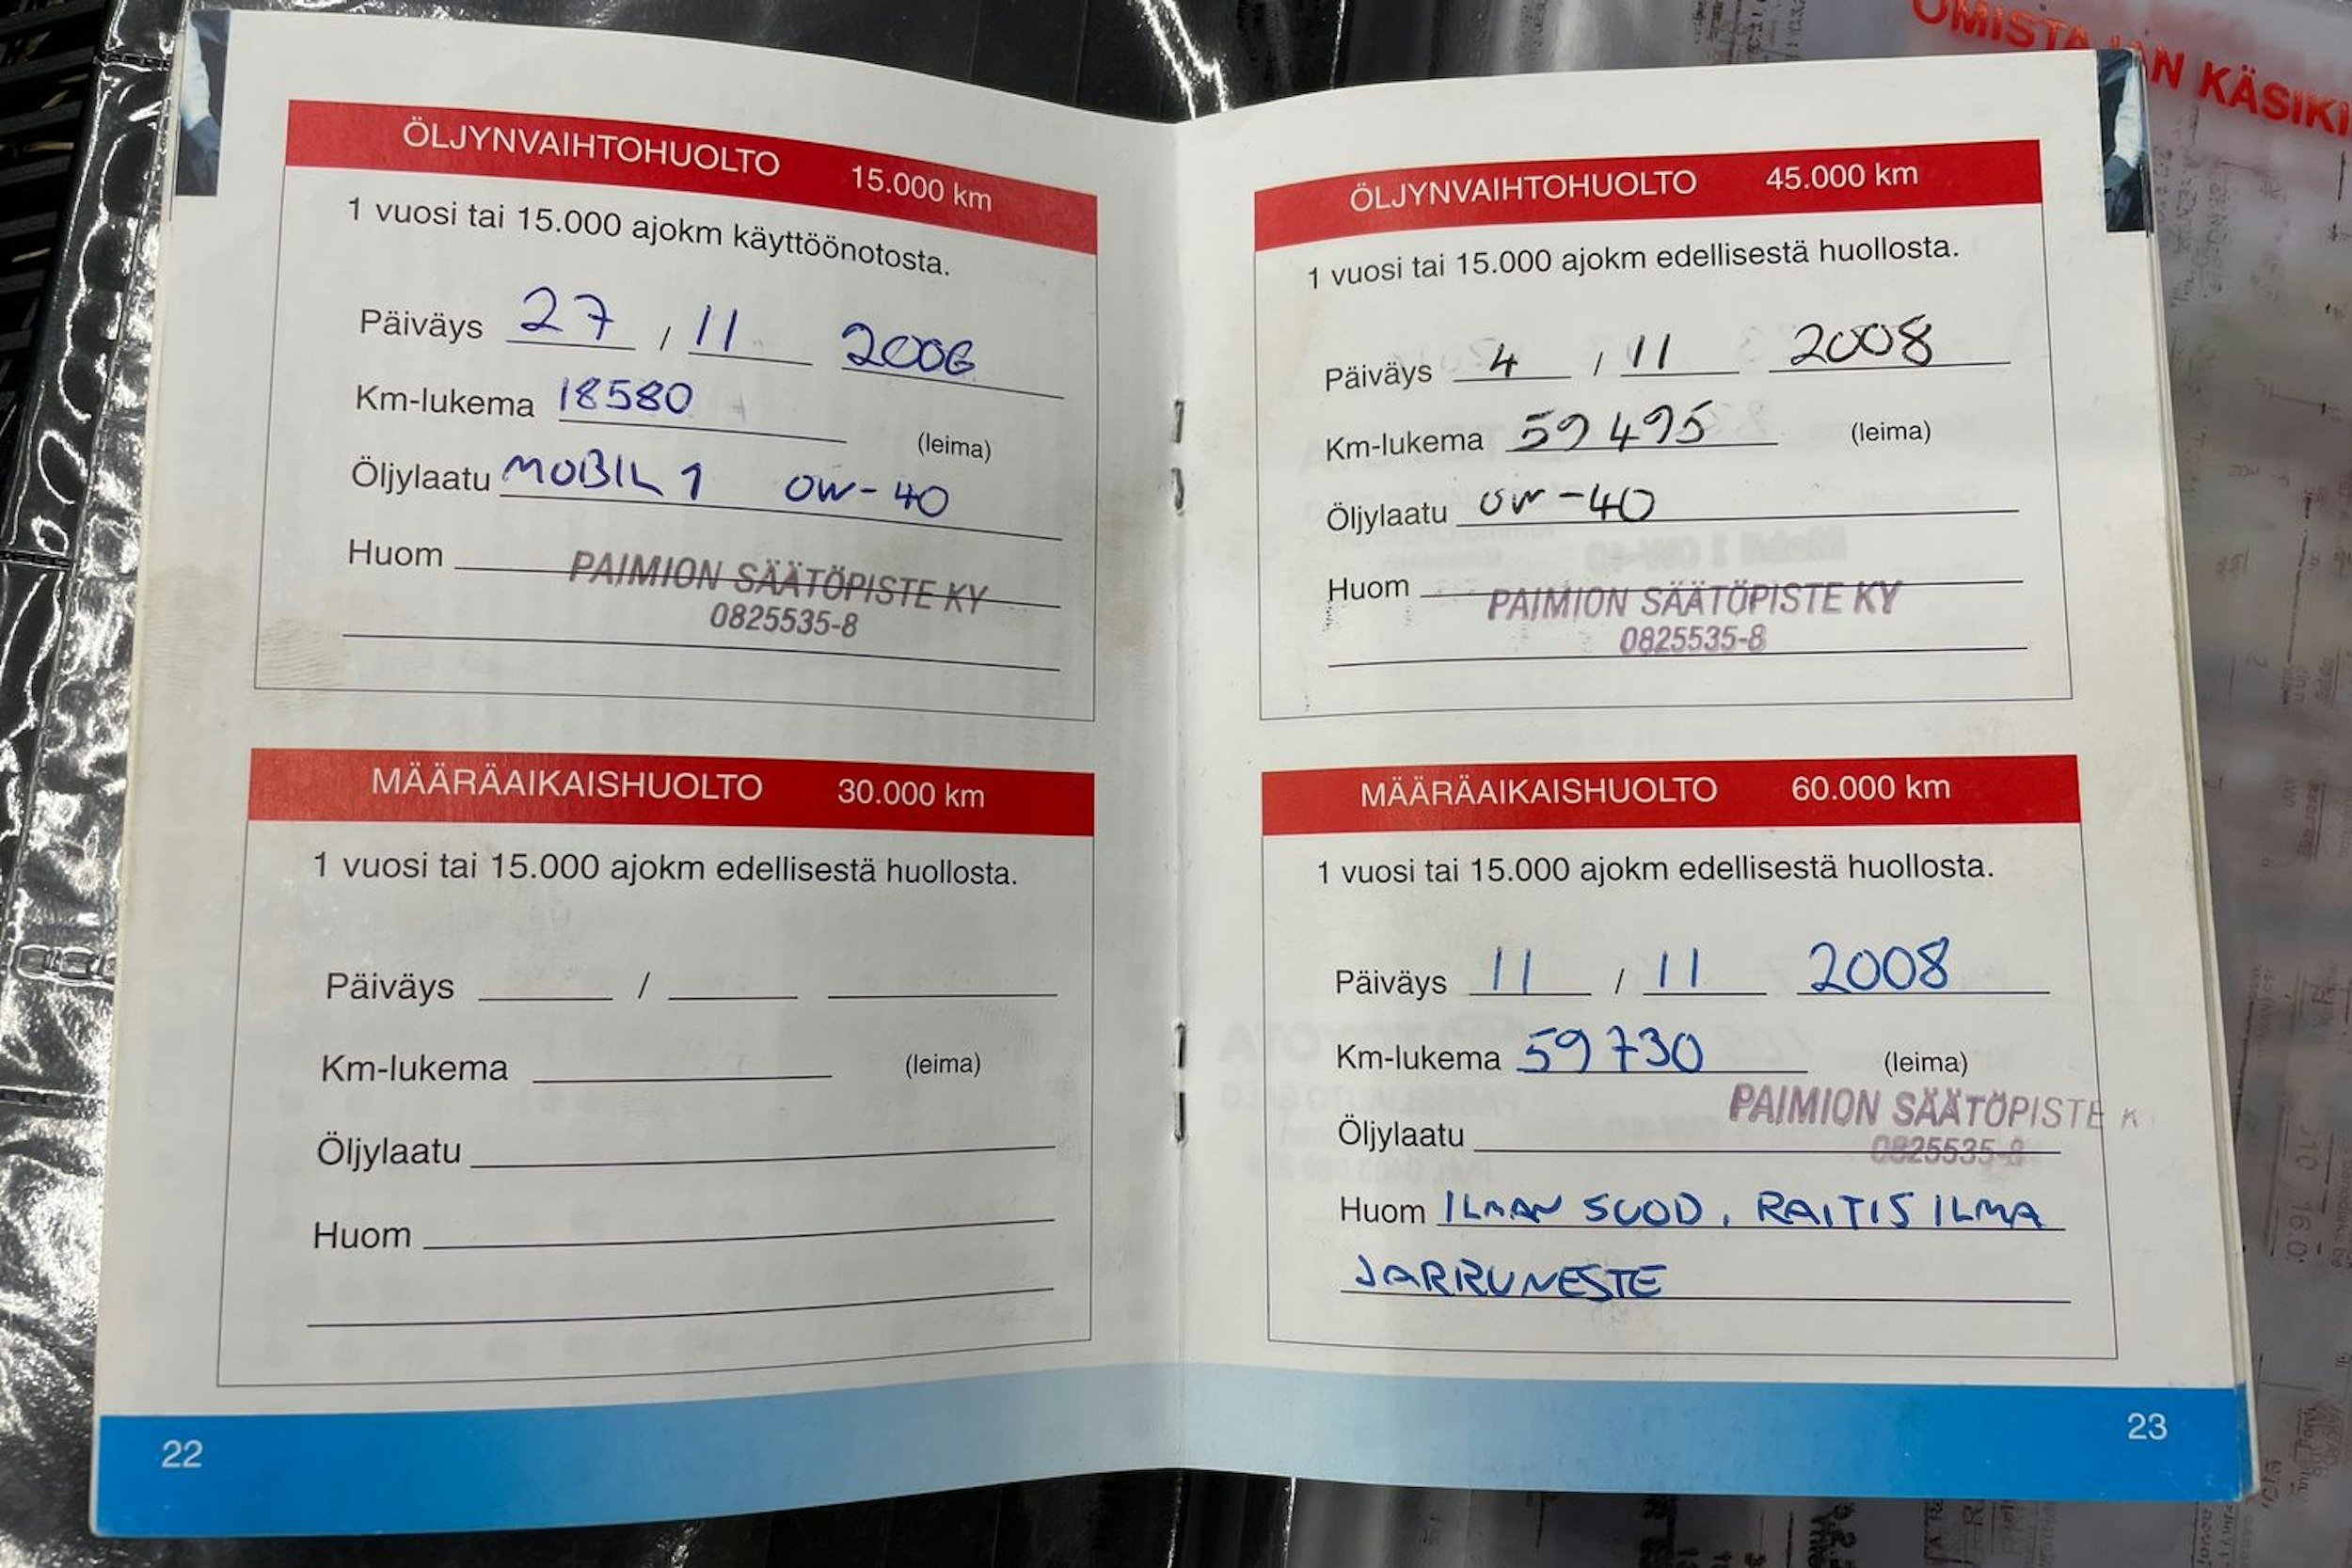 ÖLJYNVAIHTOHUOLTO 15.000 km
1 vuosi tai 15.000 ajokm käyttöönotosta.
Päiväys 27 / 11 2006
Km-lukema 18580
(leima)
Öljylaatu MOBIL 1 0W-40
Huom
PAIMION SÄÄTÖPISTE KY
0825535-8
MÄÄRÄAIKAISHUOLTO 30.000 km
1 vuosi tai 15.000 ajokm edellisestä huollosta.
Päiväys /
Km-lukema (leima)
Öljylaatu
Huom
22
ÖLJYNVAIHTOHUOLTO 45.000 km
1 vuosi tai 15.000 ajokm edellisestä huollosta.
Päiväys 4 / 11 2008
Km-lukema 59495 (leima)
Öljylaatu 0W-40
Huom
PAIMION SÄÄTÖPISTE KY
0825535-8
MÄÄRÄAIKAISHUOLTO 60.000 km
1 vuosi tai 15.000 ajokm edellisestä huollosta.
Päiväys 11 / 11 2008
Km-lukema 59730 (leima)
PAIMION SÄÄTÖPISTE K
Öljylaatu
0825535-8
Huom ILMAN SUOD, RAITIS ILMA
JARRUNESTE
23
OMISTAJAN KÄSIKI